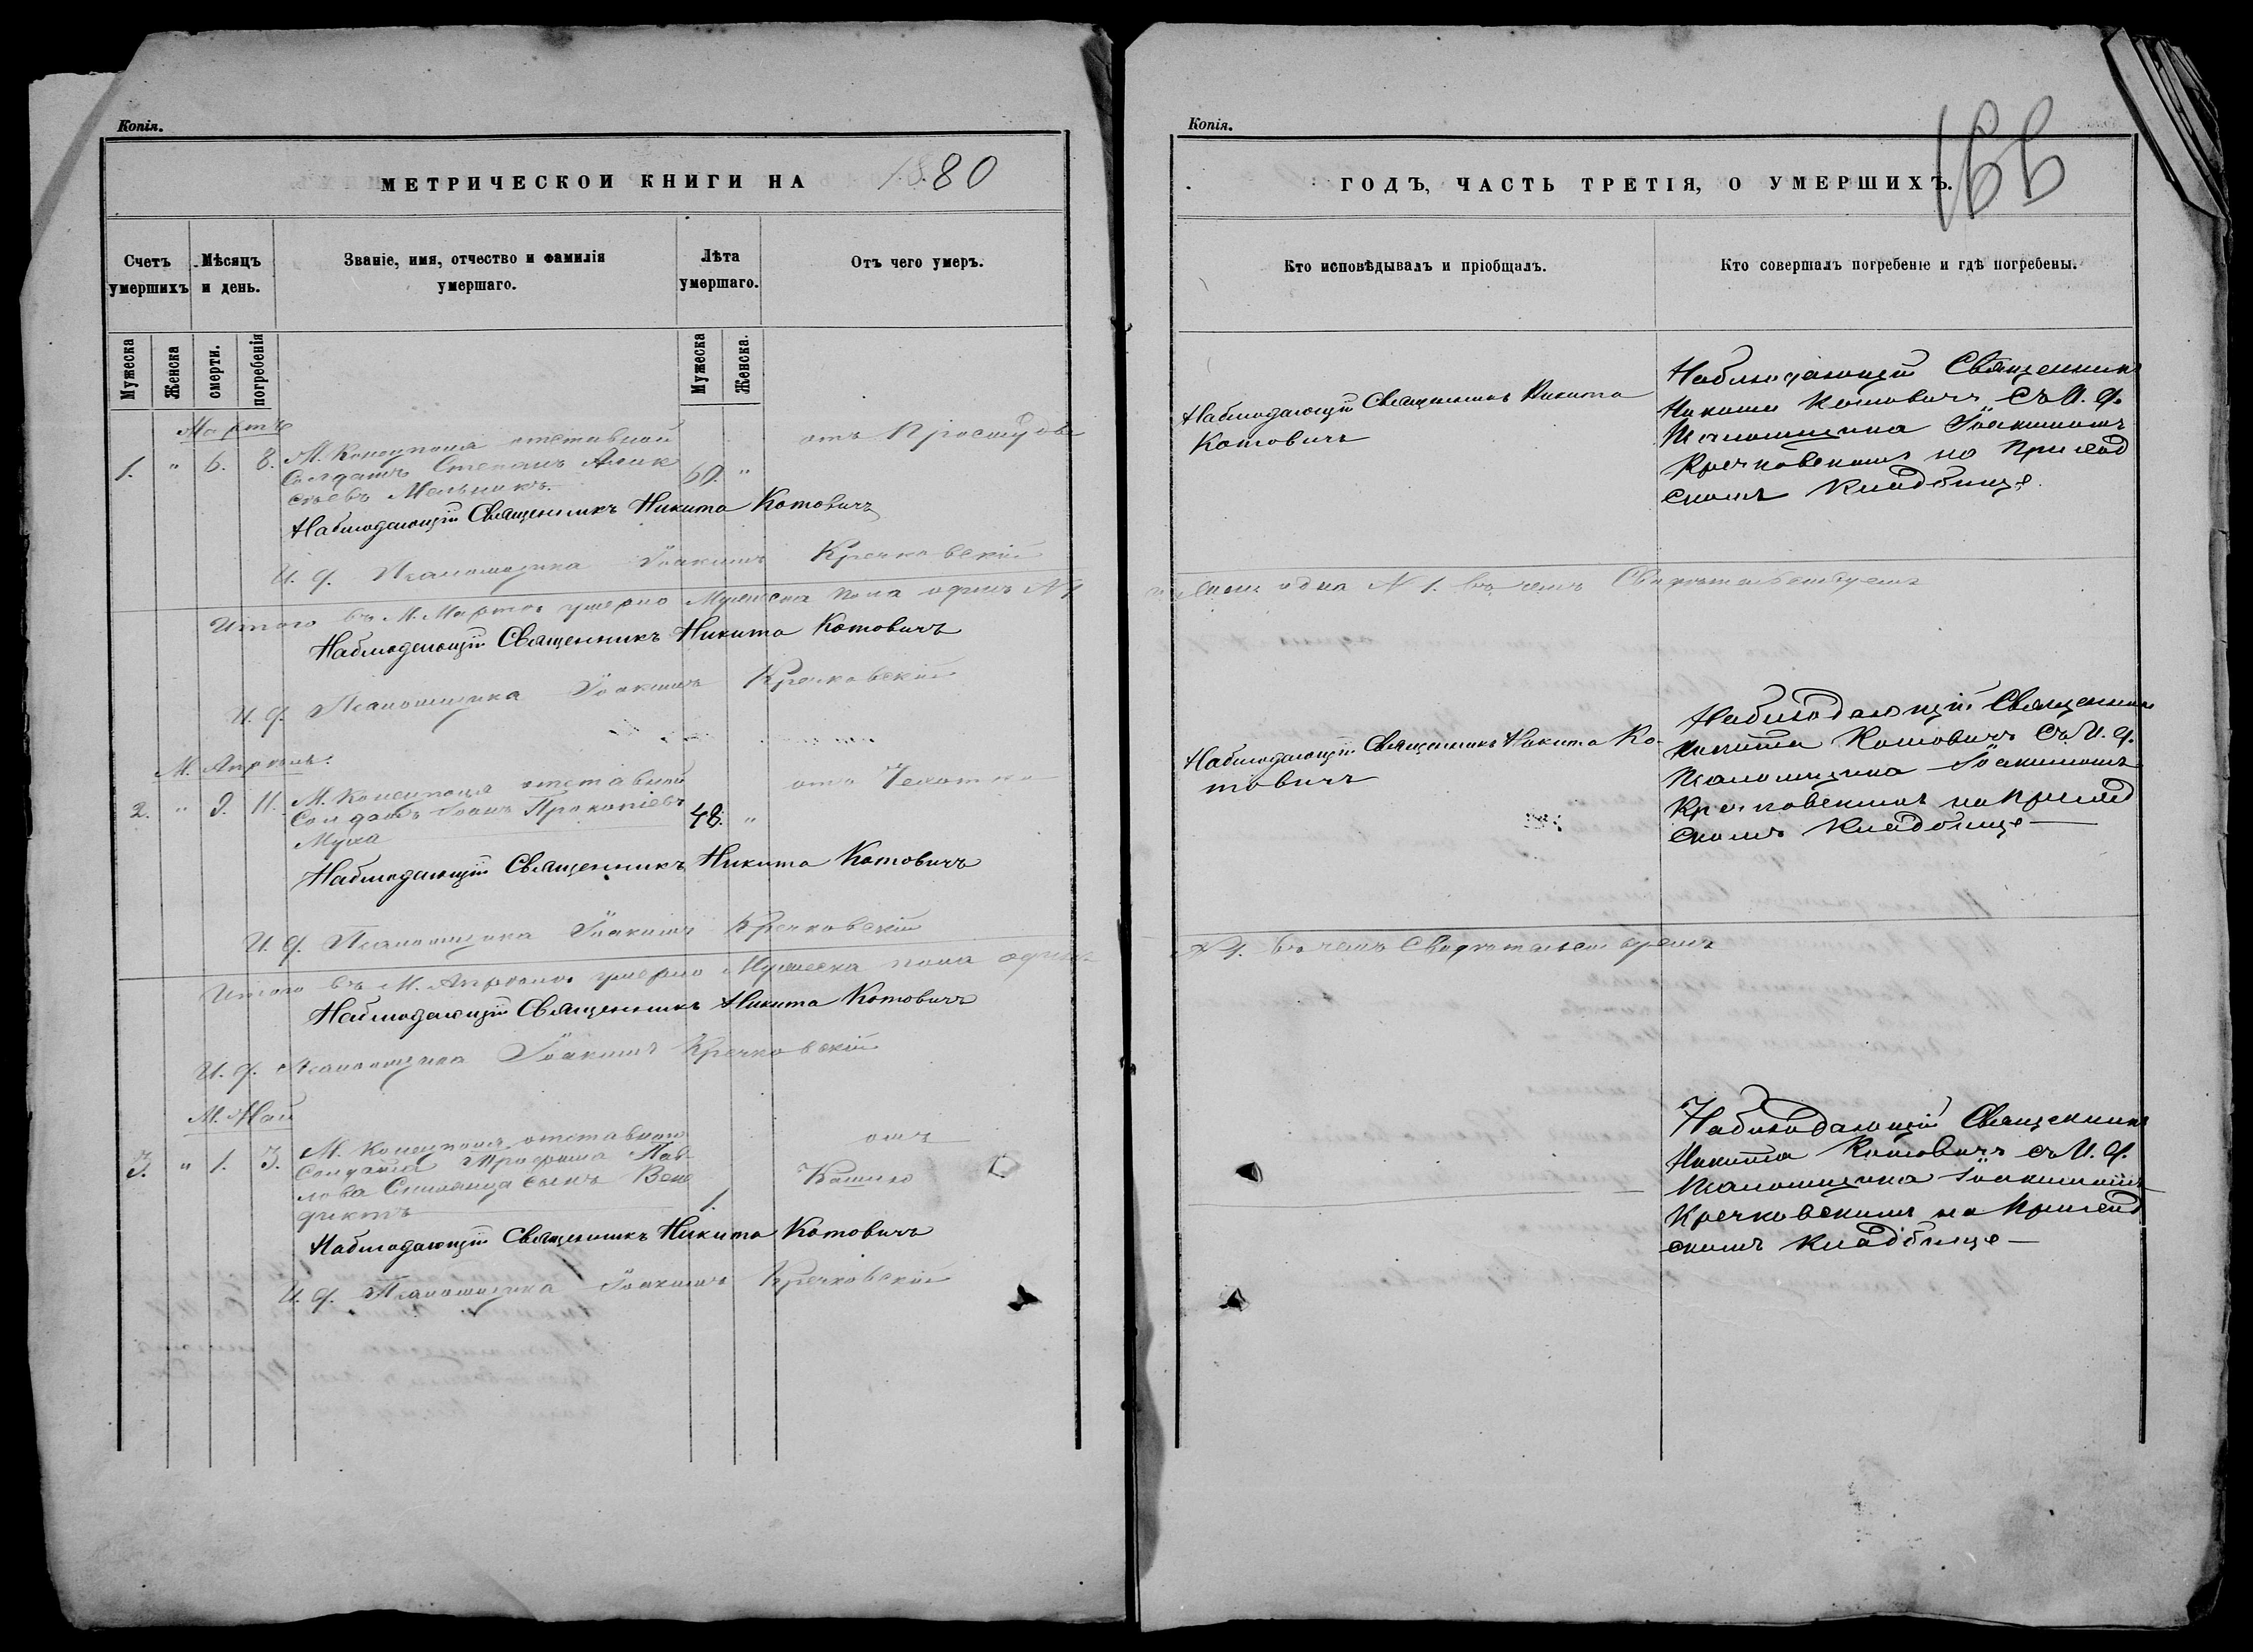 Копія.
МЕТРИЧЕСКОЙ КНИГИ НА 1880
Счетъ умершихъ
Мѣсяцъ и день.
Званіе, имя, отчество и фамилія умершаго.
Лѣта умершаго.
Отъ чего умеръ.
Мужеска
Женска
смерти.
погребенія
Мужеска
Женска.
Мартъ
1. " 6. 8. М. отставной отъ Простуды
Солдатъ Степанъ Алик 60. "
сѣевъ Мельникъ.
Наблюдающій Священникъ Никита Котовичъ
И. д. Псаломщика Іоакимъ Кречковскій
Итого въ М. Мартѣ умерло Мужеска пола одинъ №1
Наблюдающій Священникъ Никита Котовичъ
И. д. Псаломщика Іоакимъ Кречковскій
М. Апрѣль.
2. " 9. 11. М. отставной отъ Чехотки
Солдатъ Іоаннъ Прокопіевъ 48. "
Муха
Наблюдающій Священникъ Никита Котовичъ
И. д. Псаломщика Іоакимъ Кречковскій
Итого въ М. Апрѣлѣ умерло Мужеска пола одинъ
Наблюдающій Священникъ Никита Котовичъ
И. д. Псаломщика Іоакимъ Кречковскій
М. Май
3. " 1. 3. М. отставнаго отъ
Солдата Трофима Пав
лова сынъ Вене Кашлю
диктъ 1.
Наблюдающій Священникъ Никита Котовичъ
И. д. Псаломщика Іоакимъ Кречковскій
Копія.
166
ГОДЪ, ЧАСТЬ ТРЕТІЯ, О УМЕРШИХЪ.
Кто исповѣдывалъ и пріобщалъ.
Кто совершалъ погребеніе и гдѣ погребены.
Наблюдающій Священникъ Никита
Котовичъ
Наблюдающій Священникъ
Никита Котовичъ съ И. д.
Псаломщика Іоакимомъ
Кречковскимъ на приход
скомъ Кладбище.
одна № 1. въ чемъ Свидѣтельствуемъ
Наблюдающій Священникъ Никита Ко-
товичъ
Наблюдающій Священникъ
Никита Котовичъ съ И. д.
Псаломщика Іоакимомъ
Кречковскимъ на приход
скомъ Кладбище
№ 1. въ чемъ Свидѣтельствуемъ
Наблюдающій Священникъ
Никита Котовичъ съ И. д.
Псаломщика Іоакимомъ
Кречковскимъ на приход
скомъ Кладбище